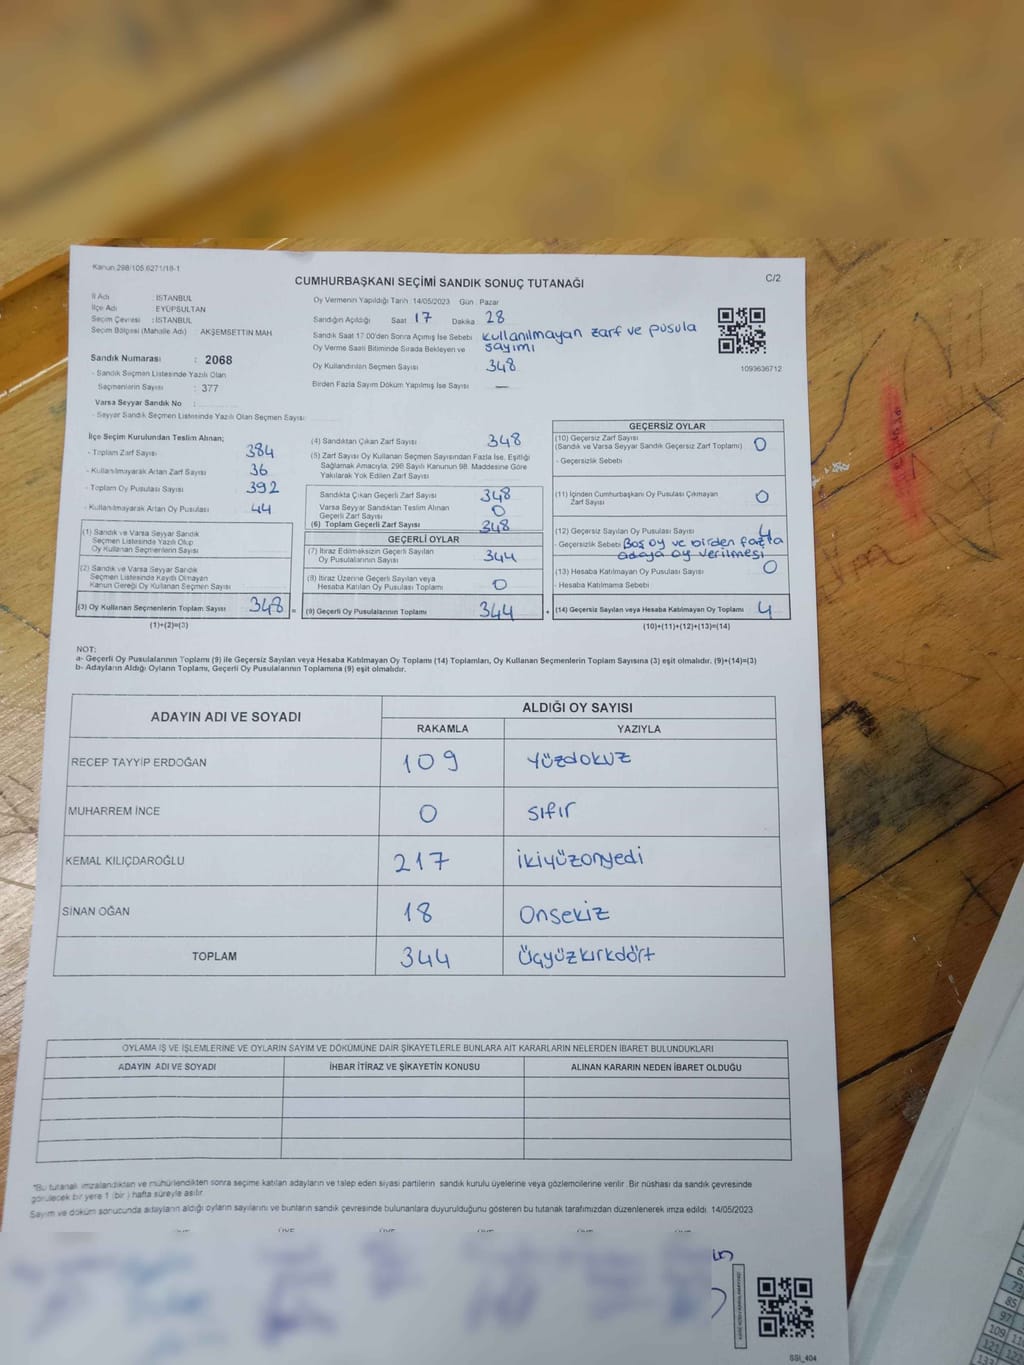 Kanun 298/105 6271/18-1
CUMHURBAŞKANI SEÇİMİ SANDIK SONUÇ TUTANAĞI
C/2
İl Adı : İSTANBUL
İlçe Adı : EYÜPSULTAN
Seçim Çevresi : İSTANBUL
Seçim Bölgesi (Mahalle Adı) AKŞEMSETTİN MAH
Sandık Numarası : 2068
- Sandık Seçmen Listesinde Yazılı Olan
Seçmenlerin Sayısı : 377
Varsa Seyyar Sandık No :
- Seyyar Sandık Seçmen Listesinde Yazılı Olan Seçmen Sayısı
Oy Vermenin Yapıldığı Tarih 14/05/2023 Gün : Pazar
Sandığın Açıldığı Saat 17 Dakika : 28
Sandık Saat 17:00'den Sonra Açımış İse Sebebi kullanılmayan zarf ve pusula
Oy Verme Saati Bitiminde Sırada Bekleyen ve sayımı
Oy Kullandırılan Seçmen Sayısı 348
Birden Fazla Sayım Döküm Yapılmış İse Sayısı —
1093636712
İlçe Seçim Kurulundan Teslim Alınan;
- Toplam Zarf Sayısı 384
- Kullanılmayarak Artan Zarf Sayısı 36
- Toplam Oy Pusulası Sayısı 392
- Kullanılmayarak Artan Oy Pusulası 44
(1) Sandık ve Varsa Seyyar Sandık
Seçmen Listesinde Yazılı Olup
Oy Kullanan Seçmenlerin Sayısı
(2) Sandık ve Varsa Seyyar Sandık
Seçmen Listesinde Kayıtlı Olmayan
Kanun Gereği Oy Kullanan Seçmen Sayısı
(3) Oy Kullanan Seçmenlerin Toplam Sayısı 348 =
(1)+(2)=(3)
(4) Sandıktan Çıkan Zarf Sayısı 348
(5) Zarf Sayısı Oy Kullanan Seçmen Sayısından Fazla İse, Eşitliği
Sağlamak Amacıyla, 298 Sayılı Kanunun 98. Maddesine Göre
Yakılarak Yok Edilen Zarf Sayısı
Sandıkta Çıkan Geçerli Zarf Sayısı 348
Varsa Seyyar Sandıktan Teslim Alınan
Geçerli Zarf Sayısı 0
(6) Toplam Geçerli Zarf Sayısı 348
GEÇERLİ OYLAR
(7) İtiraz Edilmeksizin Geçerli Sayılan
Oy Pusulalarının Sayısı 344
(8) İtiraz Üzerine Geçerli Sayılan veya
Hesaba Katılan Oy Pusulası Toplamı 0
(9) Geçerli Oy Pusulalarının Toplamı 344 +
GEÇERSİZ OYLAR
(10) Geçersiz Zarf Sayısı
(Sandık ve Varsa Seyyar Sandık Geçersiz Zarf Toplamı) 0
- Geçersizlik Sebebi
(11) İçinden Cumhurbaşkanı Oy Pusulası Çıkmayan
Zarf Sayısı 0
(12) Geçersiz Sayılan Oy Pusulası Sayısı 4
- Geçersizlik Sebebi Boş oy ve birden fazla
adaya oy verilmesi
(13) Hesaba Katılmayan Oy Pusulası Sayısı 0
- Hesaba Katılmama Sebebi
(14) Geçersiz Sayılan veya Hesaba Katılmayan Oy Toplamı 4
(10)+(11)+(12)+(13)=(14)
NOT:
a- Geçerli Oy Pusulalarının Toplamı (9) ile Geçersiz Sayılan veya Hesaba Katılmayan Oy Toplamı (14) Toplamları, Oy Kullanan Seçmenlerin Toplam Sayısına (3) eşit olmalıdır. (9)+(14)=(3)
b- Adayların Aldığı Oyların Toplamı, Geçerli Oy Pusulalarının Toplamına (9) eşit olmalıdır.
ADAYIN ADI VE SOYADI
ALDIĞI OY SAYISI
RAKAMLA YAZIYLA
RECEP TAYYİP ERDOĞAN 109 yüzdokuz
MUHARREM İNCE 0 sıfır
KEMAL KILIÇDAROĞLU 217 ikiyüzonyedi
SİNAN OĞAN 18 Onsekiz
TOPLAM 344 Üçyüzkırkdört
OYLAMA İŞ VE İŞLEMLERİNE VE OYLARIN SAYIM VE DÖKÜMÜNE DAİR ŞİKAYETLERLE BUNLARA AİT KARARLARIN NELERDEN İBARET BULUNDUKLARI
ADAYIN ADI VE SOYADI İHBAR İTİRAZ VE ŞİKAYETİN KONUSU ALINAN KARARIN NEDEN İBARET OLDUĞU
*Bu tutanak imzalandıktan ve mühürlendikten sonra seçime katılan adayların ve talep eden siyasi partilerin sandık kurulu üyelerine veya gözlemcilerine verilir. Bir nüshası da sandık çevresinde
görülecek bir yere 1 (bir ) hafta süreyle asılır.
Sayım ve döküm sonucunda adayların aldığı oyların sayılarını ve bunların sandık çevresinde bulunanlara duyurulduğunu gösteren bu tutanak tarafımızdan düzenlenerek imza edildi. 14/05/2023
SSİ_404